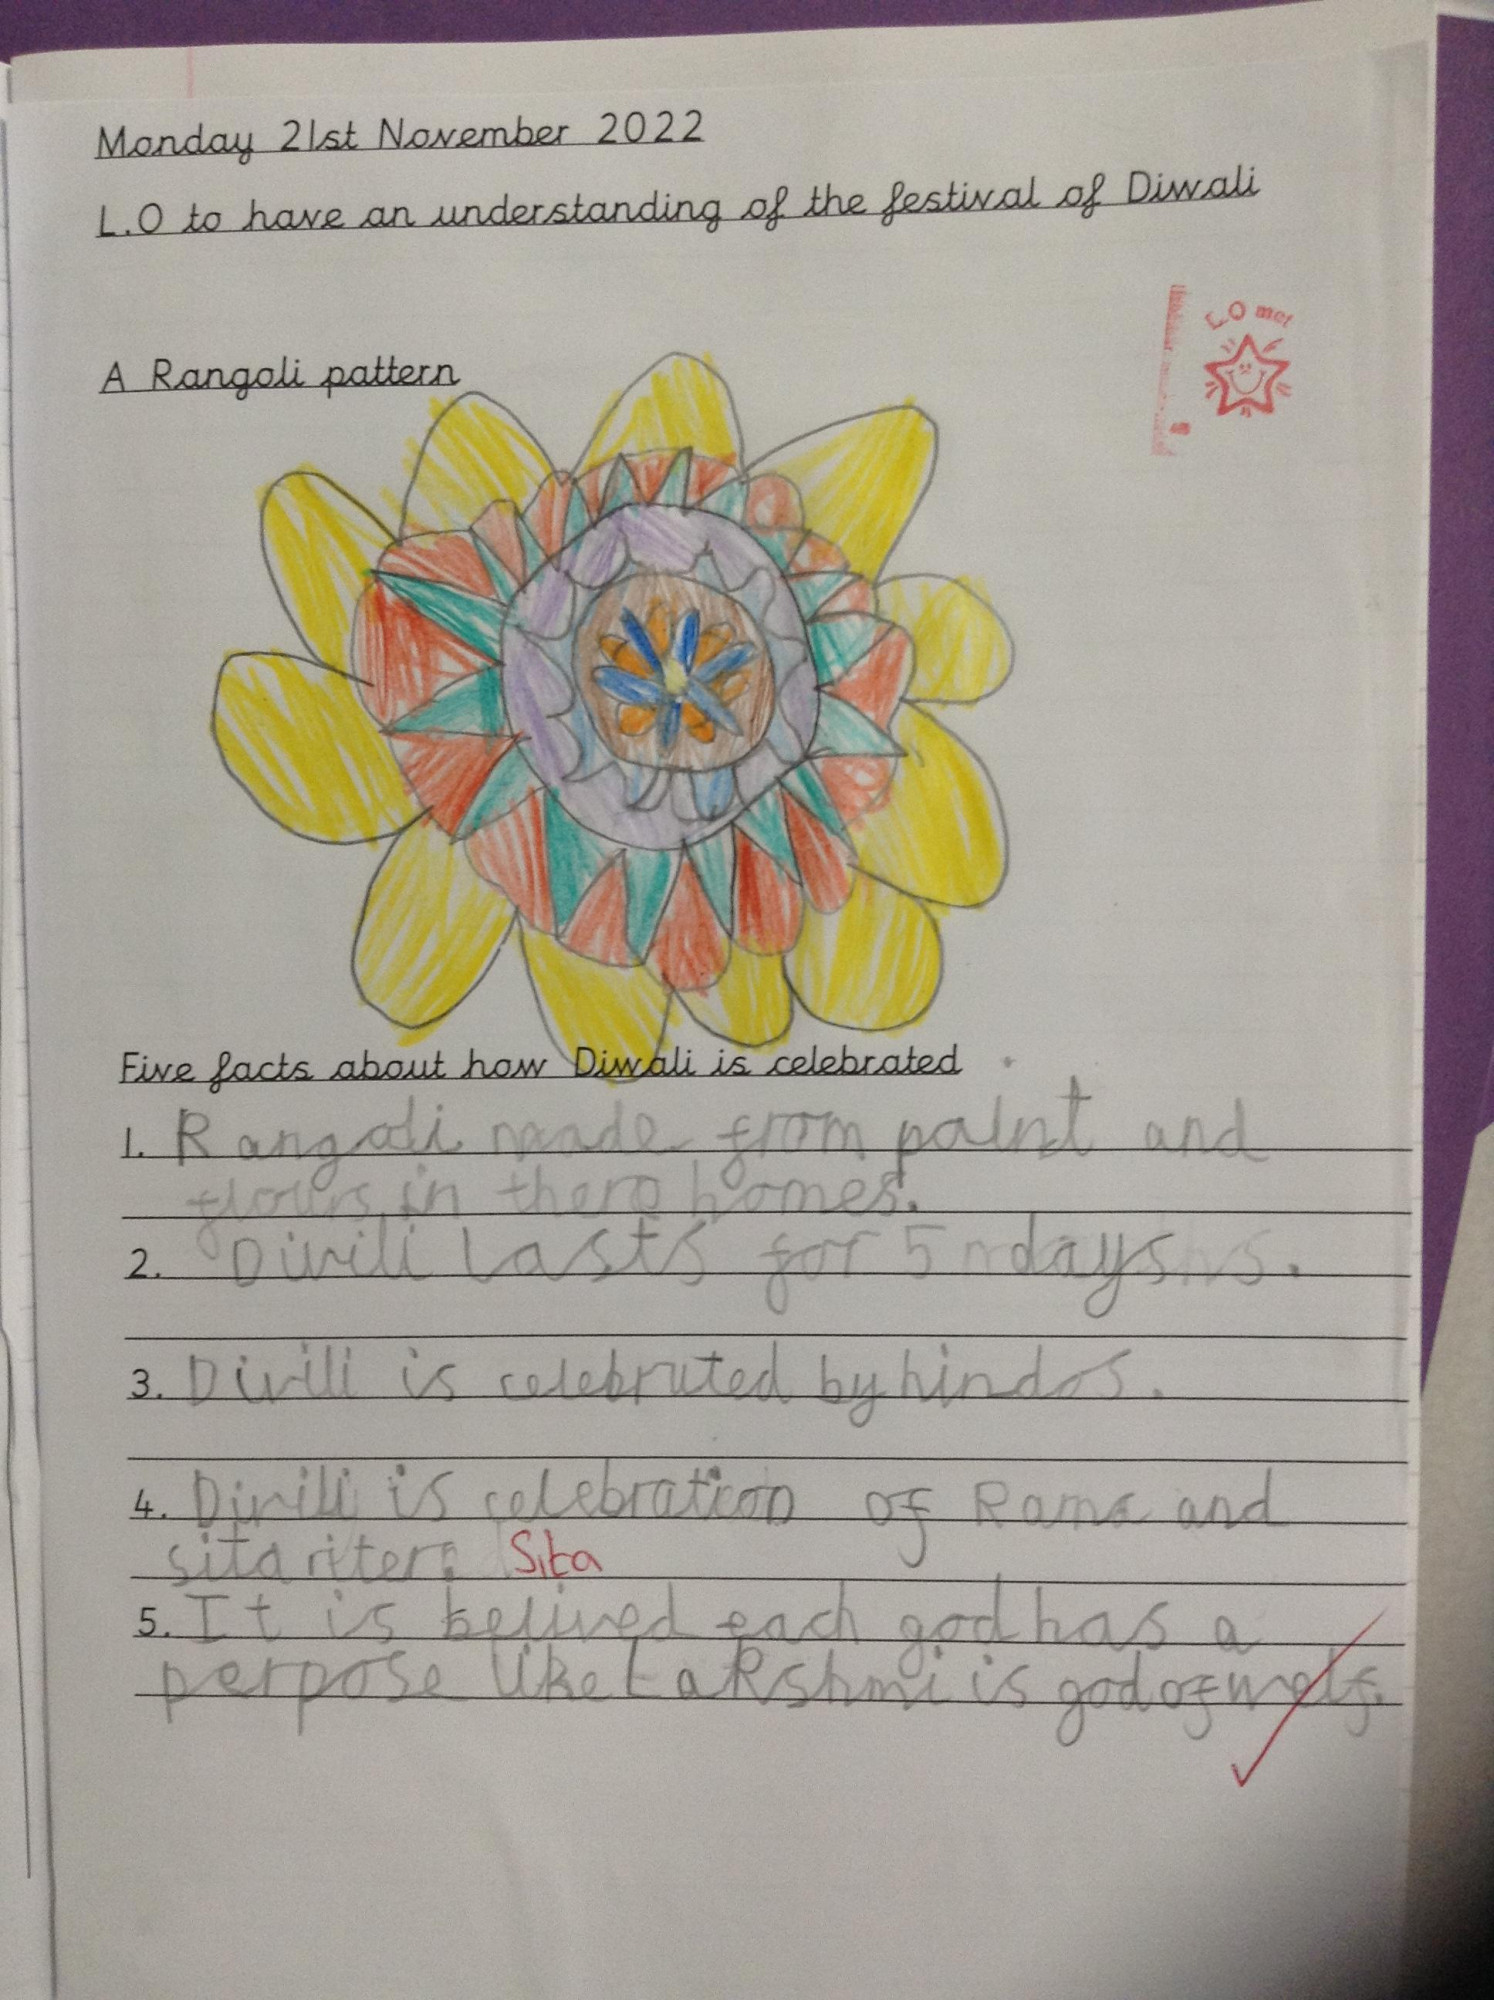 Monday 21st November 2022
L.O to have an understanding of the festival of Diwali
L.O met
A Rangoli pattern
Five facts about how Diwali is celebrated
1. Rangoli made from paint and
flours in there homes.
2. Divili lasts for 5 days.
3. Divili is celebruted by hindos.
4. Divili is celebration of Rama and
sita riter. Sita
5. It is belived each god has a
perpose like Lakshmi is god of welf.